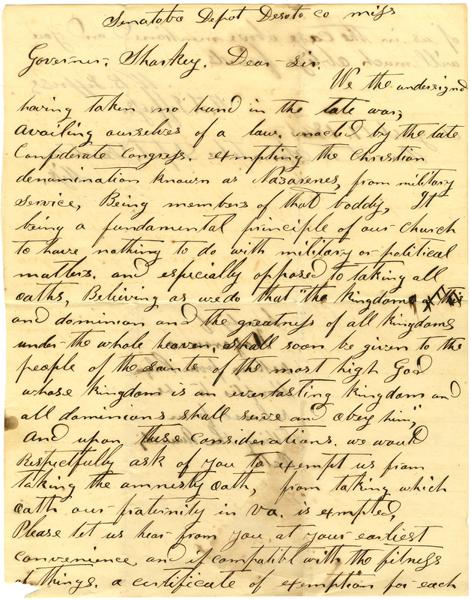 Senatobia Depot Desoto co miss
Governor. Sharkey. Dear Sir.
We the undersigned
having taken no hand in the late war,
availing ourselves of a law. enacted by the late
Confederate Congress. exempting the Christian
denomination known as Nazarenes, from military
service, Being members of that boddy, It
being a fundamental principle of our church
to have nothing to do with military or political
matters. and especially opposed to taking all
oaths, Believing as we do that "the kingdom
and dominion and the greatness of all kingdoms
under the whole heaven, shall soon be given to the
people of the saints of the most high God
whose kingdom is an everlasting kingdom and
all dominions shall serve and obey him,"
And upon these considerations. we would
Respectfully ask of you to exempt us from
taking the amnesty oath, from taking which
oath our fraternity in Va. is exempted
Please let us hear from you at your earliest
convenience, and if compatible with the fitness
of things. a certificate of exemption for each